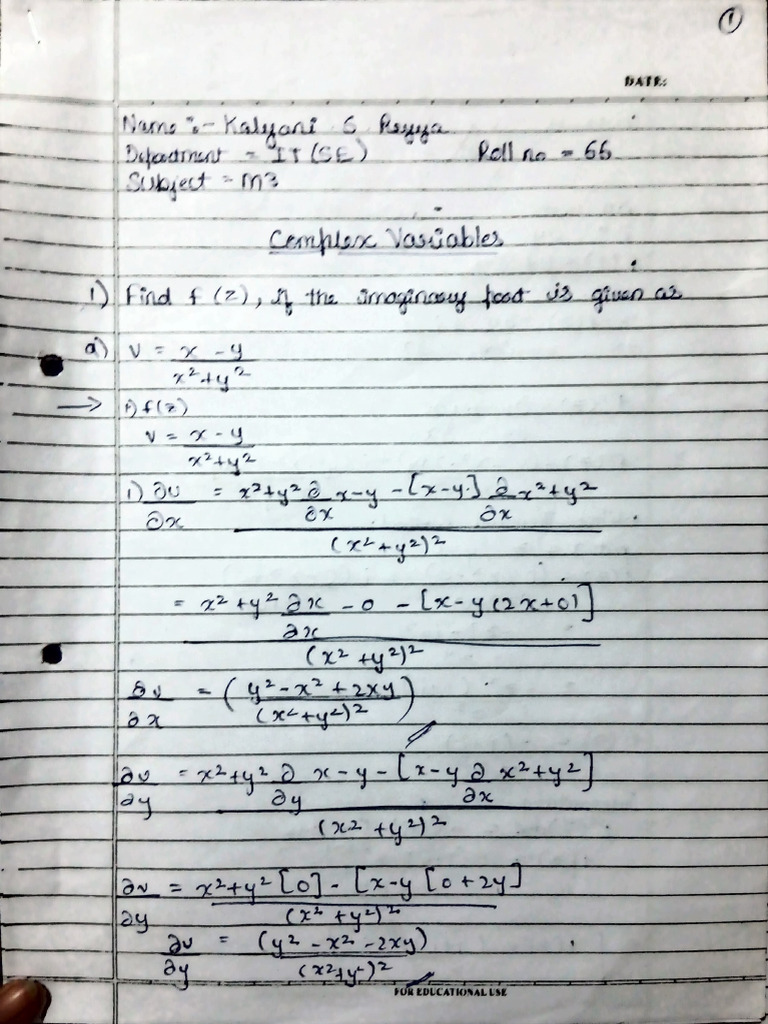 1
DATE:
Name :- Kalyani G
Department = IT (SE) Roll no = 66
Subject = M3
Complex Variables
1) Find f (z), if the imaginary part is given as
a) v = x - y
x²+y²
→ 1) f(z)
v = x - y
x²+y²
1) ∂v = x²+y² ∂ x-y - [x-y] ∂ x²+y²
∂x ∂x ∂x
(x²+y²)²
= x²+y² ∂x - 0 - [x-y (2x+0)]
∂x
(x²+y²)²
∂v = (y²-x²+2xy)
∂x (x²+y²)²
∂v = x²+y² ∂ x-y - [x-y ∂ x²+y²]
∂y ∂y ∂x
(x²+y²)²
∂v = x²+y² [0] - [x-y [0+2y]
∂y (x²+y²)²
∂v = (y²-x²-2xy)
∂y (x²+y²)²
FOR EDUCATIONAL USE